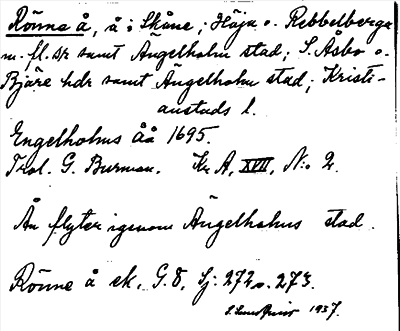 Rönne å, å i Skåne; Höja o. Rebbelberga
m. fl. snr samt Ängelholm stad; S. Åsbo o.
Bjäre hdr samt Ängelholm stad; Kristi-
anstads l.
Engelholms Åå 1695.
Trol. G. Burman. Kr A, XVII, N:o 2.
Ån flyter igenom Ängelholms stad.
Rönne å ek. G. 8. Sj: 272 o. 273.
1937.